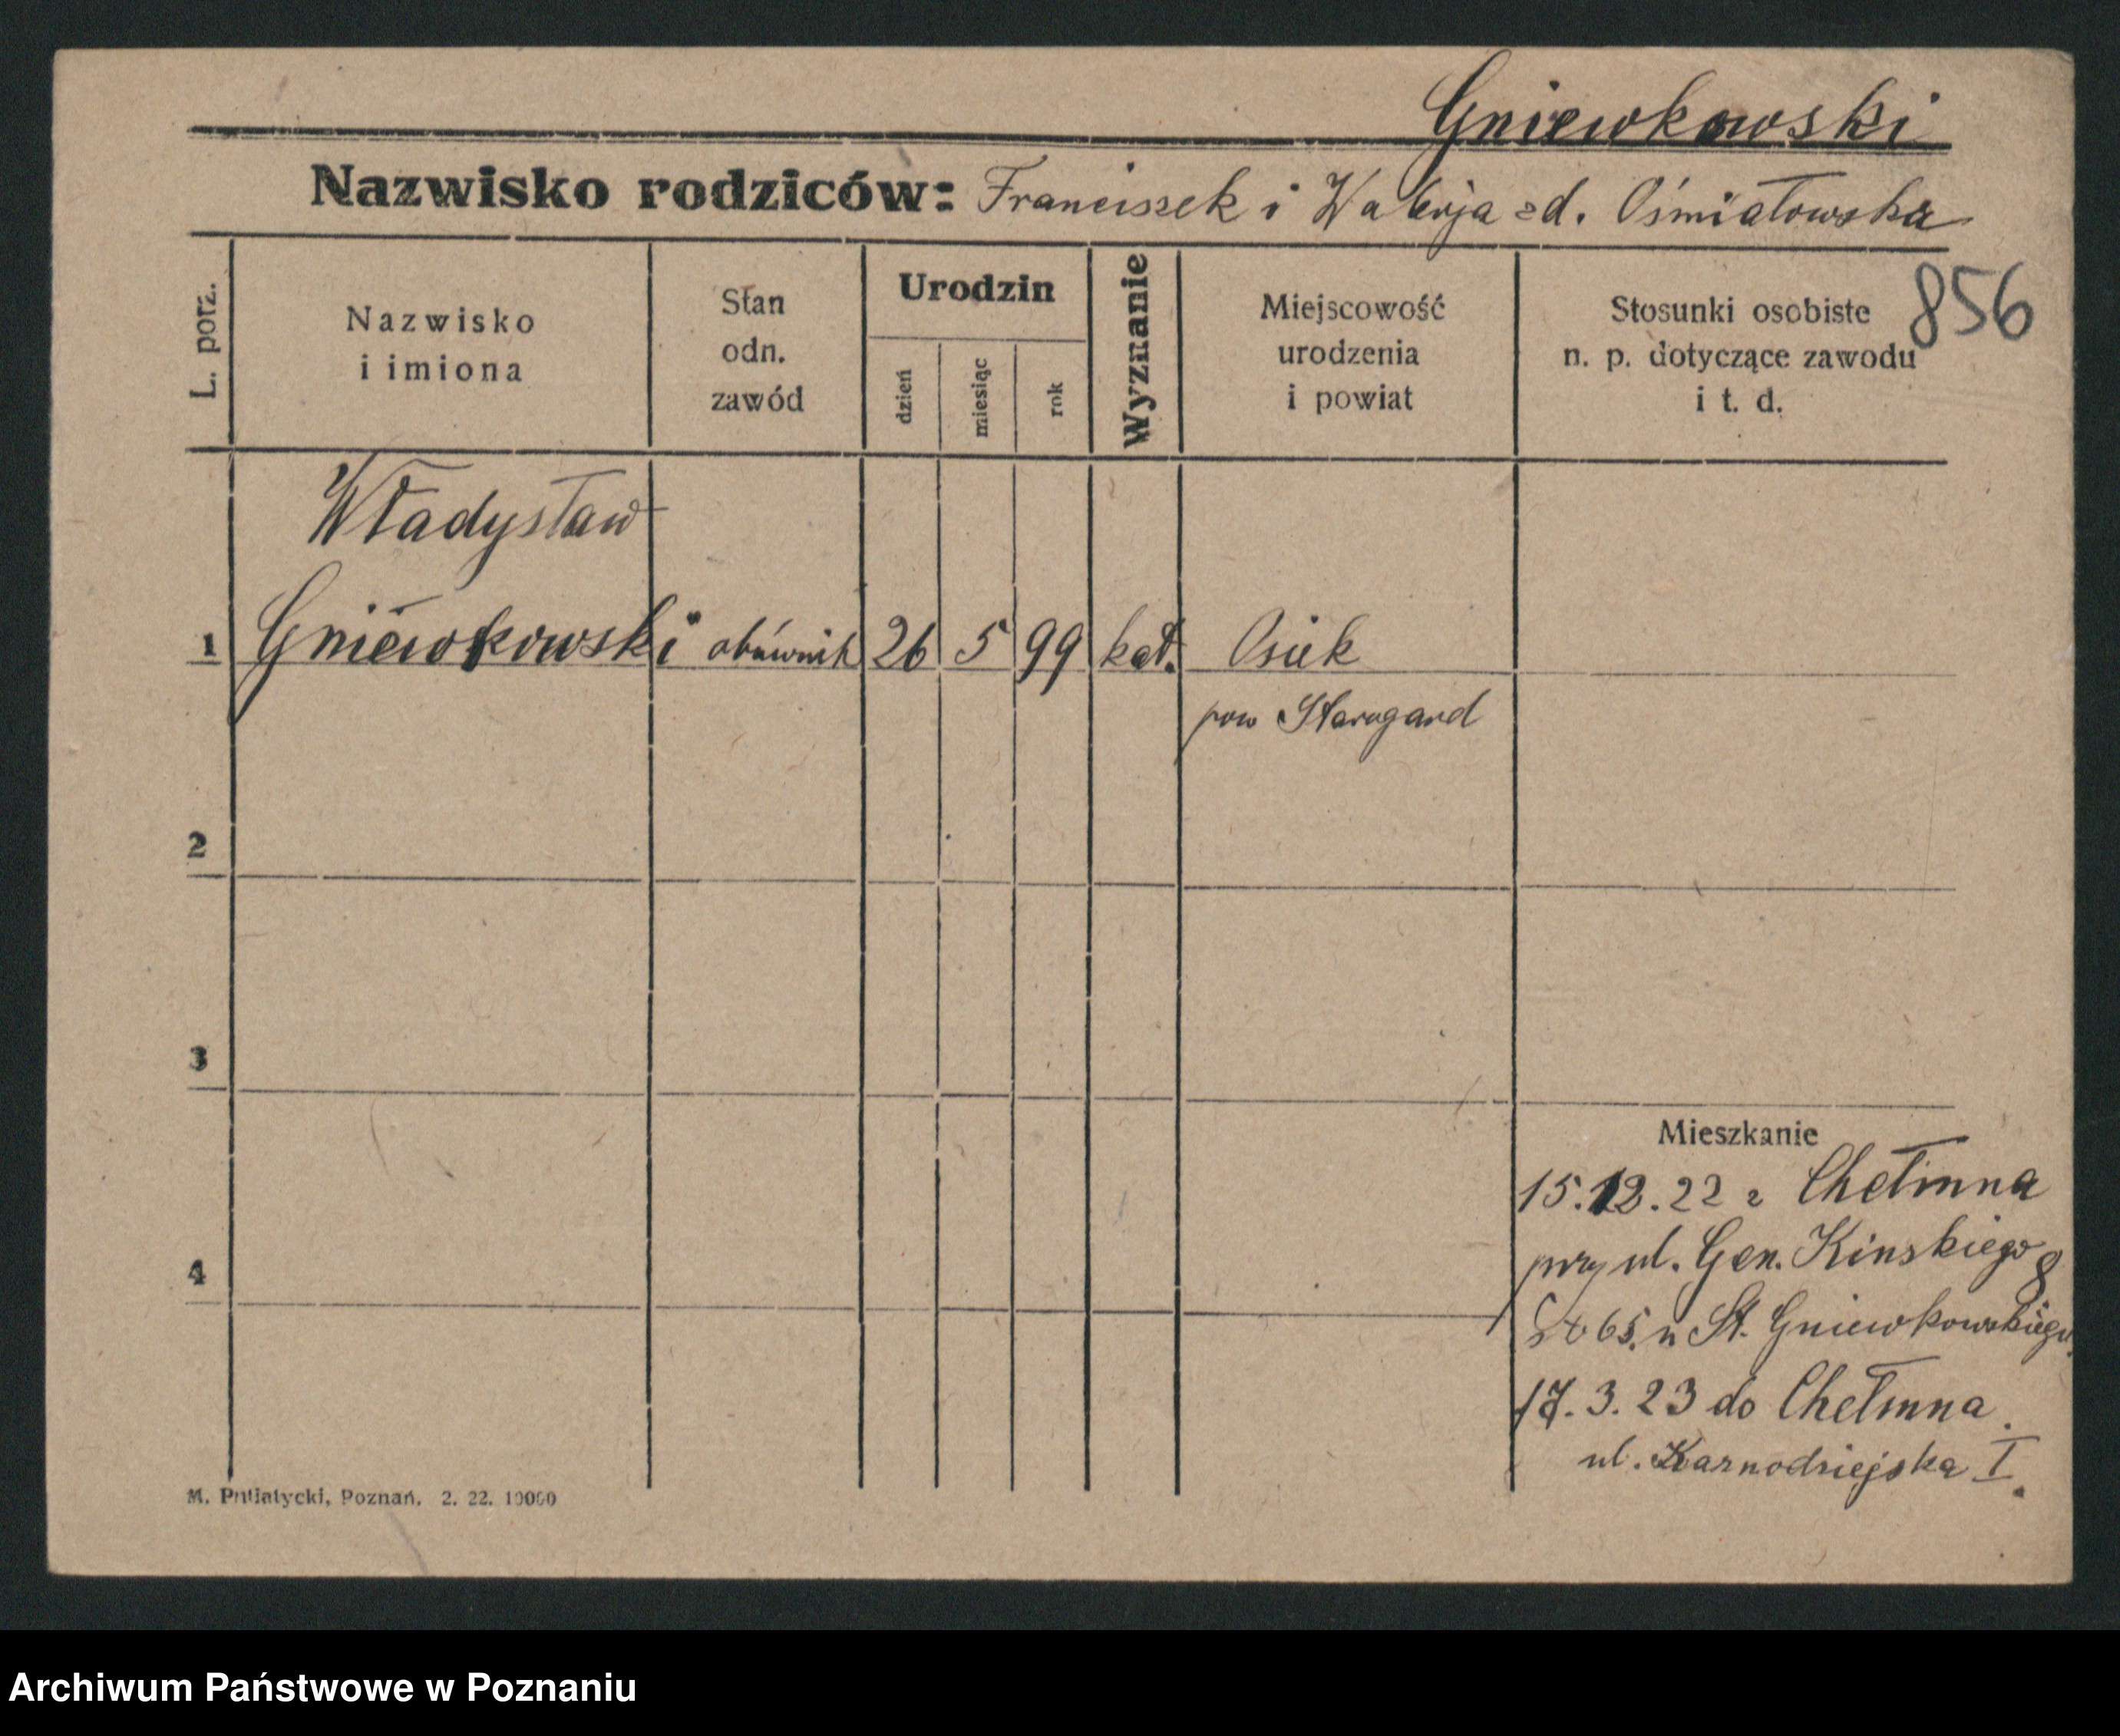 Gniewkowski
Nazwisko rodziców: Franciszek i Walerja zd. Ośmiałowska
856
L. porz.
Nazwisko
i imiona
Stan
odn.
zawód
Urodzin
dzień
miesiąc
rok
Wyznanie
Miejscowość
urodzenia
i powiat
Stosunki osobiste
n. p. dotyczące zawodu
i t. d.
Władysław
1 Gniewkowski obúwnik 26 5 99 kat. Osiek
pow Starogard
2
3
4
Mieszkanie
15.12.22 z Chełmna
przy ul. Gen. Kinskiego 8
65. u St. Gniewkowskiego.
17.3.23 do Chełmna.
ul. I.
M. Putiatycki, Poznań. 2. 22. 10000
Archiwum Państwowe w Poznaniu